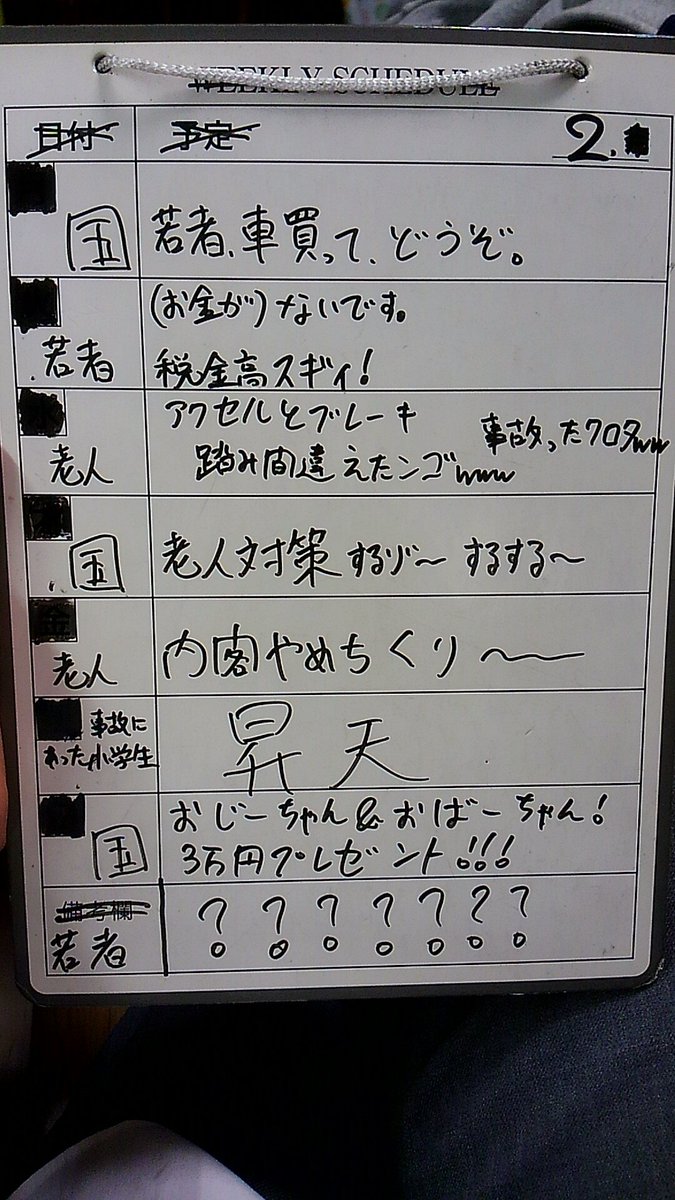 WEEKLY SCHEDULE
日付 予定 2.
国 若者、車買って、どうぞ。
(お金が)ないです。
若者 税金高スギィ!
アクセルとブレーキ 事故ったクロタwww
老人 踏み間違えたンゴwww
国 老人対策するゾ〜 するする〜
金
老人 内閣やめちくり〜
事故に
あった小学生 昇天
おじーちゃん&おばーちゃん!
国 3万円プレゼント!!!
備考欄
若者 ???????